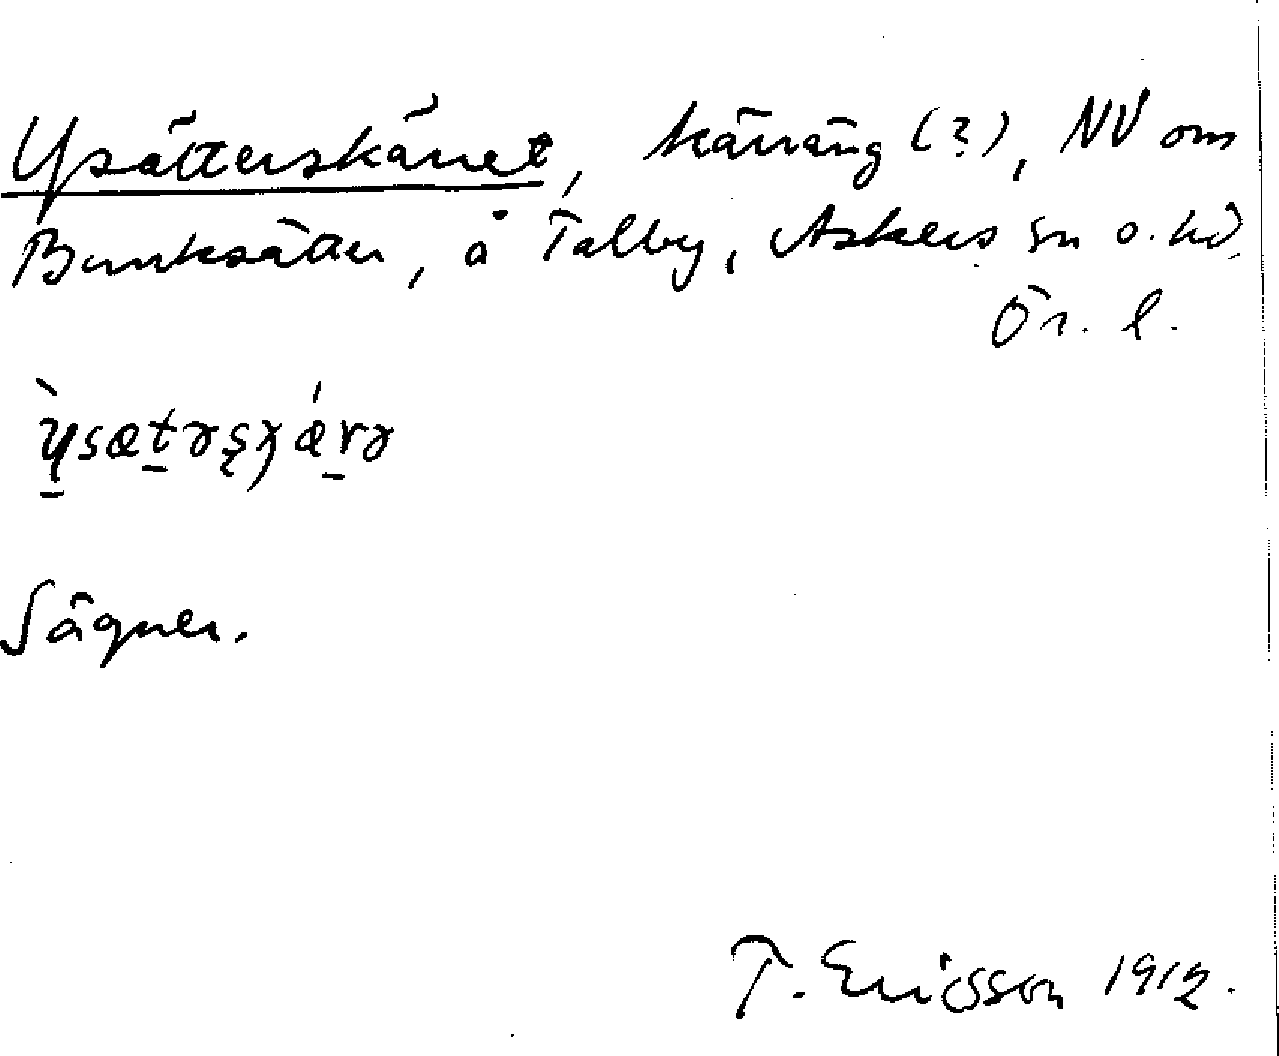 Ysätterskärret, kärräng (?), NV om
Bunksätter, å Talby, Askers sn o. hd,
Ör. l.
ỳsætərʂɣǽrə
Sägner.
T. Ericsson 1912.